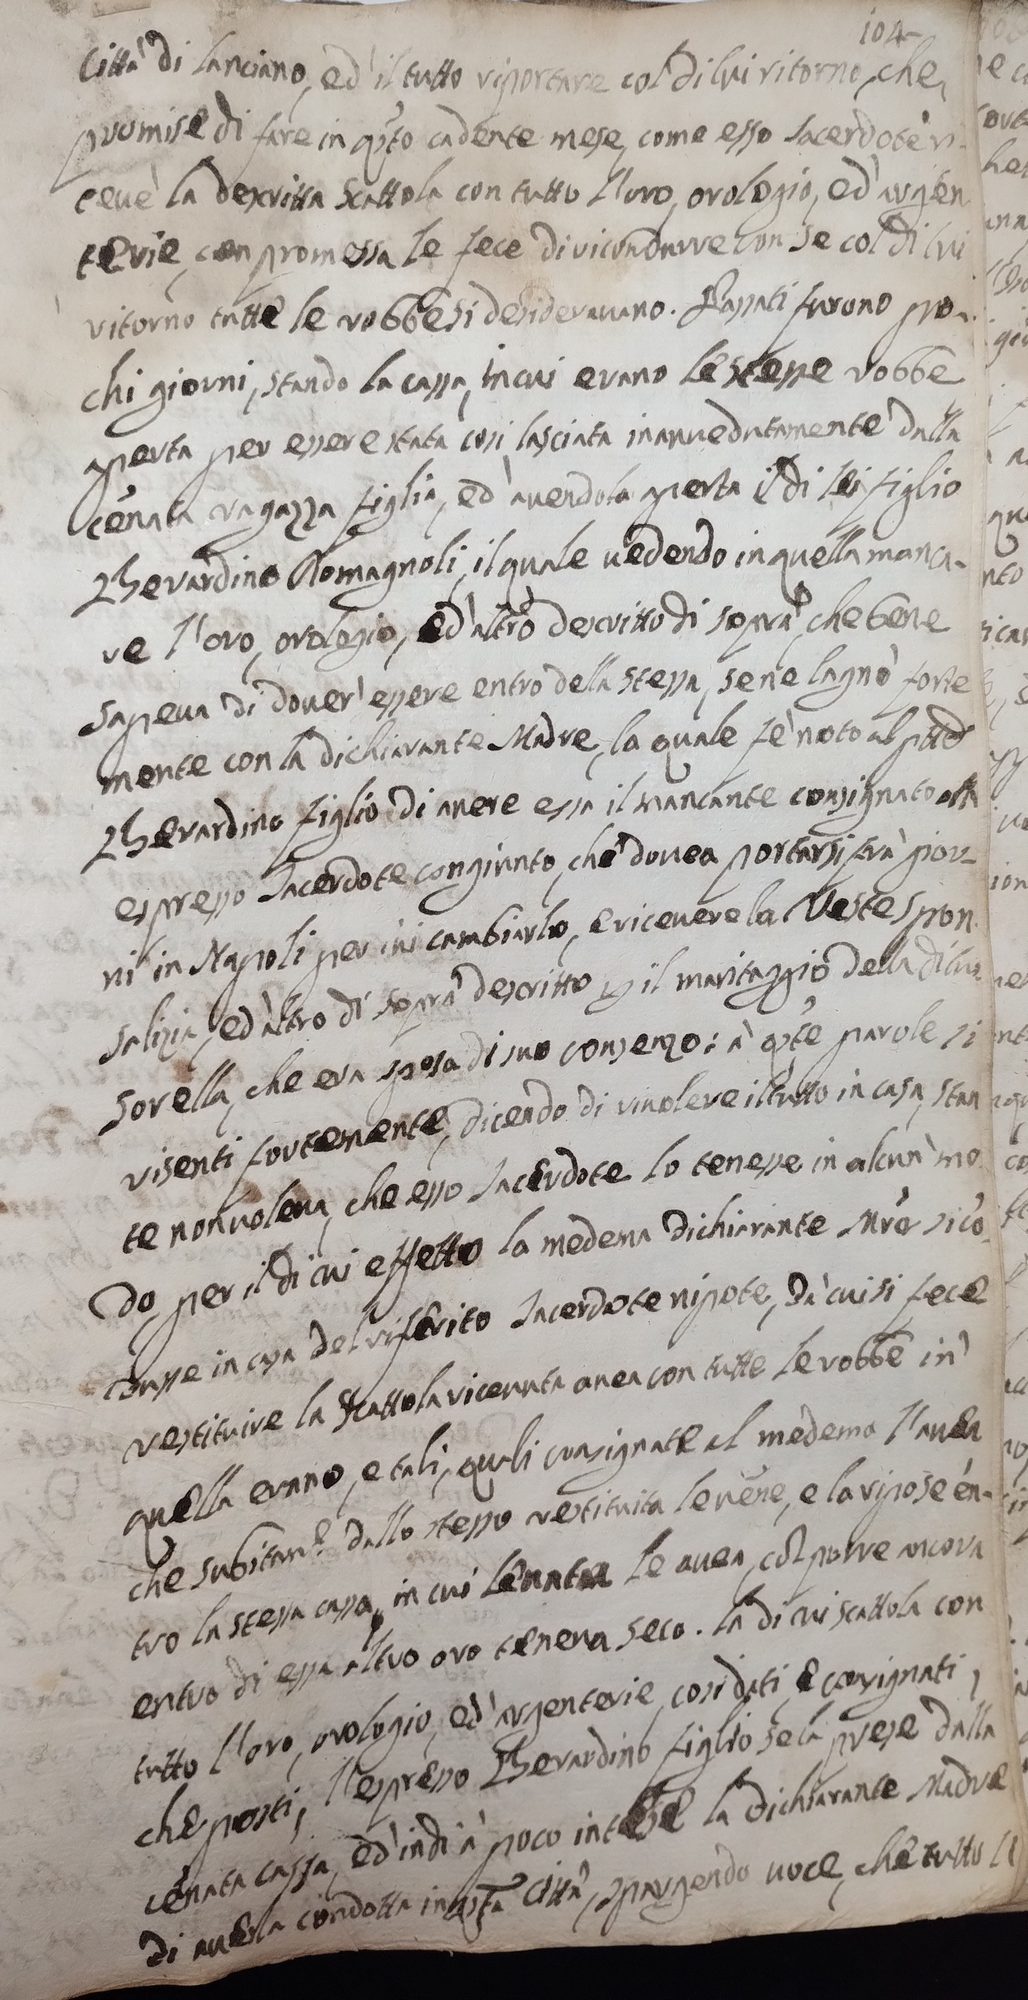 104
Città di Lanciano, ed' il tutto riportare col di lui ritorno, che,
promise di fare in q̃to cadente mese, come esso Sacerdote ri-
cevè la descritta Scattola con tutto l'oro, orologio, ed' argen
terie, con promessa le fece di ricondurre con se col di lui
ritorno tutte le robbe si desideravano. Passati furono po-
chi giorni, stando la cassa, in cui erano le stesse robbe
aperta per essere stata così lasciata inavvedutamente dalla
cẽnata ragazza figlia, ed' avendola aperta il di lei figlio
Bherardino Romagnoli, il quale vedendo in quella manca-
re l'oro, orologio, ed' altro descritto di sopra, che bene
sapeva di dover' essere entro della stessa, se ne lagnò forte
mente con la dichiarante Madre, la quale fè noto al p̃tto
Bherardino figlio di avere essa il mancante consignato all'
espresso Sacerdote congiunto, che dovea portarsi frà gior
ni in Napoli per ivi cambiarlo, e ricevere la Veste spon
salizia, ed' altro di sopra descritto p il maritaggio della di lui
Sorella, che era sposa di suo consenzo: à q̃te parole si
risentì fortemente, dicendo di rivolere il tutto in casa, stan
te non voleva, che esso Sacerdote lo tenesse in alcun' mo
do, per il di cui effetto la medema dichiarante Mrẽ si co
dusse in casa del riferito Sacerdote nipote, da cui si fece
restituire la Scattola ricevuta avea con tutte le robbe in
quella erano, e tali, quali consignate al medemo l'avea
che subitam.e dallo stesso restituita le vẽne, e la ripose èn-
tro la stessa cassa, in cui levata le avea, cõl porre ancora
entro di essa altro oro teneva seco. la di cui scattola con
tutto l'oro, orologio, ed' argenterie, così dati, e consignati,
che posti, l'espresso Bherardino figlio se la prese dalla
cẽnata cassa, ed' indi à poco intese la dichiarante Madre
di averla condotta in q̃ta Città, spargendo voce, che tutto li